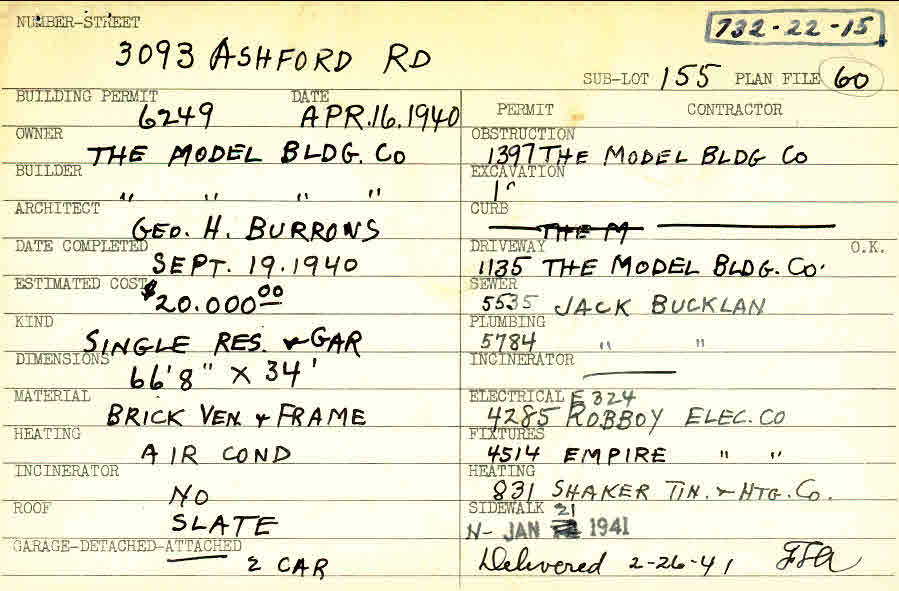 NUMBER-STREET
732-22-15
3093 ASHFORD RD
SUB-LOT 155 PLAN FILE 60
BUILDING PERMIT DATE
6249 APR.16.1940
OWNER
THE MODEL BLDG. Co
BUILDER
" " " "
ARCHITECT
GEO. H. BURROWS
DATE COMPLETED
SEPT. 19.1940
ESTIMATED COST
$20.000 00
KIND
SINGLE RES. & GAR
DIMENSIONS
66'8" X 34'
MATERIAL
BRICK VEN. & FRAME
HEATING
AIR COND
INCINERATOR
NO
ROOF
SLATE
GARAGE-DETACHED-ATTACHED
2 CAR
PERMIT CONTRACTOR
OBSTRUCTION
1397 THE MODEL BLDG Co
EXCAVATION
1"
CURB
THE M
DRIVEWAY O.K.
1135 THE MODEL BLDG. Co.
SEWER
5535 JACK BUCKLAN
PLUMBING
5784 " "
INCINERATOR
ELECTRICAL E 324
4285 ROBBOY ELEC. CO
FIXTURES
4514 EMPIRE " "
HEATING
831 SHAKER TIN. & HTG. Co.
SIDEWALK 21
N- JAN 1941
Delivered 2-26-41